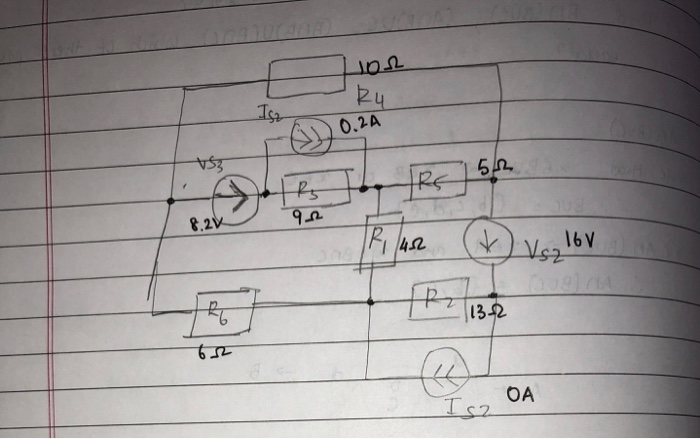 10Ω
R4
Is2
0.2A
VS3
R3
R5
5Ω
8.2V
9Ω
R1
4Ω
VS2 16V
R6
R2
13Ω
6Ω
0A
Is2